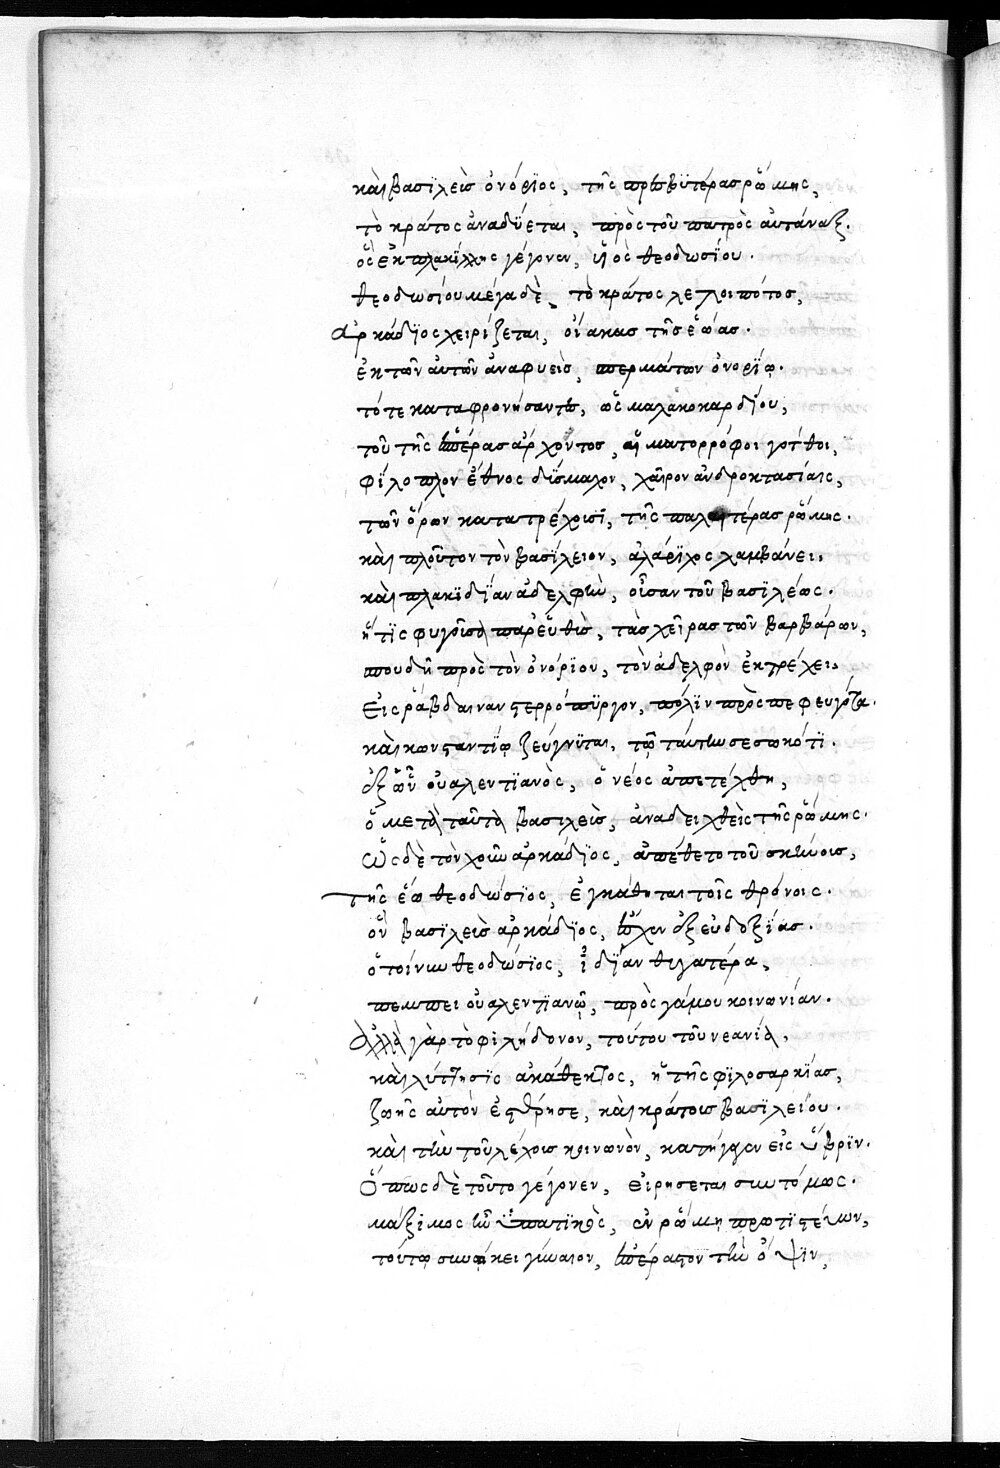 καὶ βασϊλεὺς ὀνόριος, τῆς πρεσβϋτέρας ῥώμης,
τὸ κράτος ἀναδύεται, πρὸς τοῦ πατρὸς αὐτάναξ.
ὃς ἐκ πλακίλλης γέγονεν, ϋἱὸς θεοδωσΐου.
θεοδωσίου μέγα δὲ, τὸ κράτος λελοιπότος,
ἀρκάδϊος χειρίζεται, οἴακας τῆς ἑῴας.
ἐκ τῶν αὐτῶν ἀναφυεὶς, σπερμάτων ὀνορίῳ.
τότε καταφρονήσαντες, ὡς μαλακοκαρδίου,
τοῦ τῆς ἑσπέρας ἄρχοντος, αἱματορρόφοι γότθοι,
φϊλόπλον ἔθνος δύσμαχον, χαῖρον ἀνδροκτασίαις,
τῶν ὅρων κατατρέχουσϊ, τῆς παλαιτέρας ῥώμης.
καὶ πλοῦτον τὸν βασίλειον, ἀλάριχος λαμβάνει,
καὶ πλακιδίαν ἀδελφὴν, οὖσαν τοῦ βασϊλέως.
ἥτϊς φυγοῦσα παρευθὺς, τὰς χεῖρας τῶν βαρβάρων,
σπουδῇ πρὸς τὸν ὀνόριον, τὸν ἀδελφὸν ἐκτρέχει,
εἰς ῥάβδαιναν στερρόπυργον, πόλϊν προσπεφευγότα.
καὶ κωνσταντίῳ ζεύγνϋται, τῷ ταύτην σεσωκότϊ.
ἐξ ὧν οὐαλεντϊανὸς, ὁ νέος ἀπετέχθη,
ὁ μετὰ ταῦτα βασϊλεὺς, ἀναδειχθεὶς τῆς ῥώμης.
ὡς δὲ τὸν χοῦν ἀρκάδϊος, ἀπέθετο τοῦ σκήνους,
τῆς ἕω θεοδώσϊος, ἐγκάθηται τοῖς θρόνοις.
ὃν βασϊλεὺς ἀρκάδϊος, ἔσχεν ἐξ εὐδοξΐας.
ὁ τοίνυν θεοδώσϊος, ἰδΐαν θυγατέρα,
πέμπει οὐαλεντϊανῷ, πρὸς γάμου κοινωνίαν.
ἀλλὰ γὰρ τὸ φιλήδονον, τούτου τοῦ νεανία,
καὶ λύττησϊς ἀκάθεκτος, ἡ τῆς φϊλοσαρκίας,
ζωῆς αὐτὸν ἐστέρησε, καὶ κράτους βασϊλείου.
καὶ τὴν τοῦ λέχους κοινωνὸν, κατήγαγεν εἰς ὕβρϊν.
ὅπως δὲ τοῦτο γέγονεν, εἰρήσεται συντόμως.
μάξϊμος ἦν ὑπατϊκὸς, ἐν ῥώμῃ πρωτϊστεύων,
τούτῳ συνῴκει γύναιον, ὑπέραστον τὴν ὄψϊν,